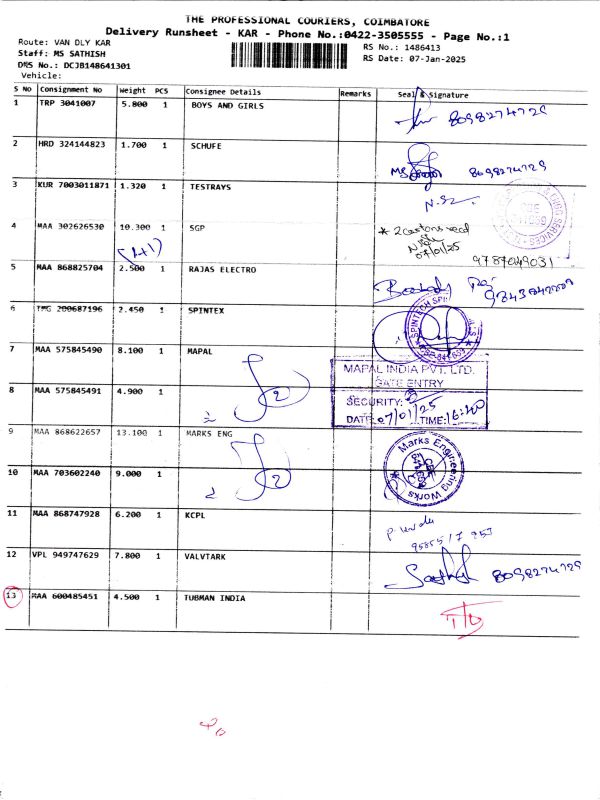 THE PROFESSIONAL COURIERS, COIMBATORE
Delivery Runsheet - KAR - Phone No.:0422-3505555 - Page No.:1
Route: VAN DLY KAR
Staff: MS SATHISH
DMS No.: DCJB148641301
Vehicle:
RS No.: 1486413
RS Date: 07-Jan-2025
S No Consignment No Weight PCS Consignee Details Remarks Seal & Signature
1 TRP 3041007 5.800 1 BOYS AND GIRLS
8098274729
2 HRD 324144823 1.700 1 SCHUFE
8098274729
3 KUR 7003011871 1.320 1 TESTRAYS
4 MAA 302626530 10.300 1 SGP
* 2 cartons recd
07/01/25
9787049031
(1+1)
5 MAA 868825704 2.500 1 RAJAS ELECTRO
6 TMG 200687196 2.450 1 SPINTEX
7 MAA 575845490 8.100 1 MAPAL
MAPAL INDIA PVT. LTD.
GATE ENTRY
SECURITY:
DATE: 07/01/25 TIME: 16:40
8 MAA 575845491 4.900 1
2
9 MAA 868622657 13.100 1 MARKS ENG
Marks Engineering Works
10 MAA 703602240 9.000 1
2
11 MAA 868747928 6.200 1 KCPL
12 VPL 949747629 7.800 1 VALVTARK
8098274729
13 MAA 600485451 4.500 1 TUBMAN INDIA